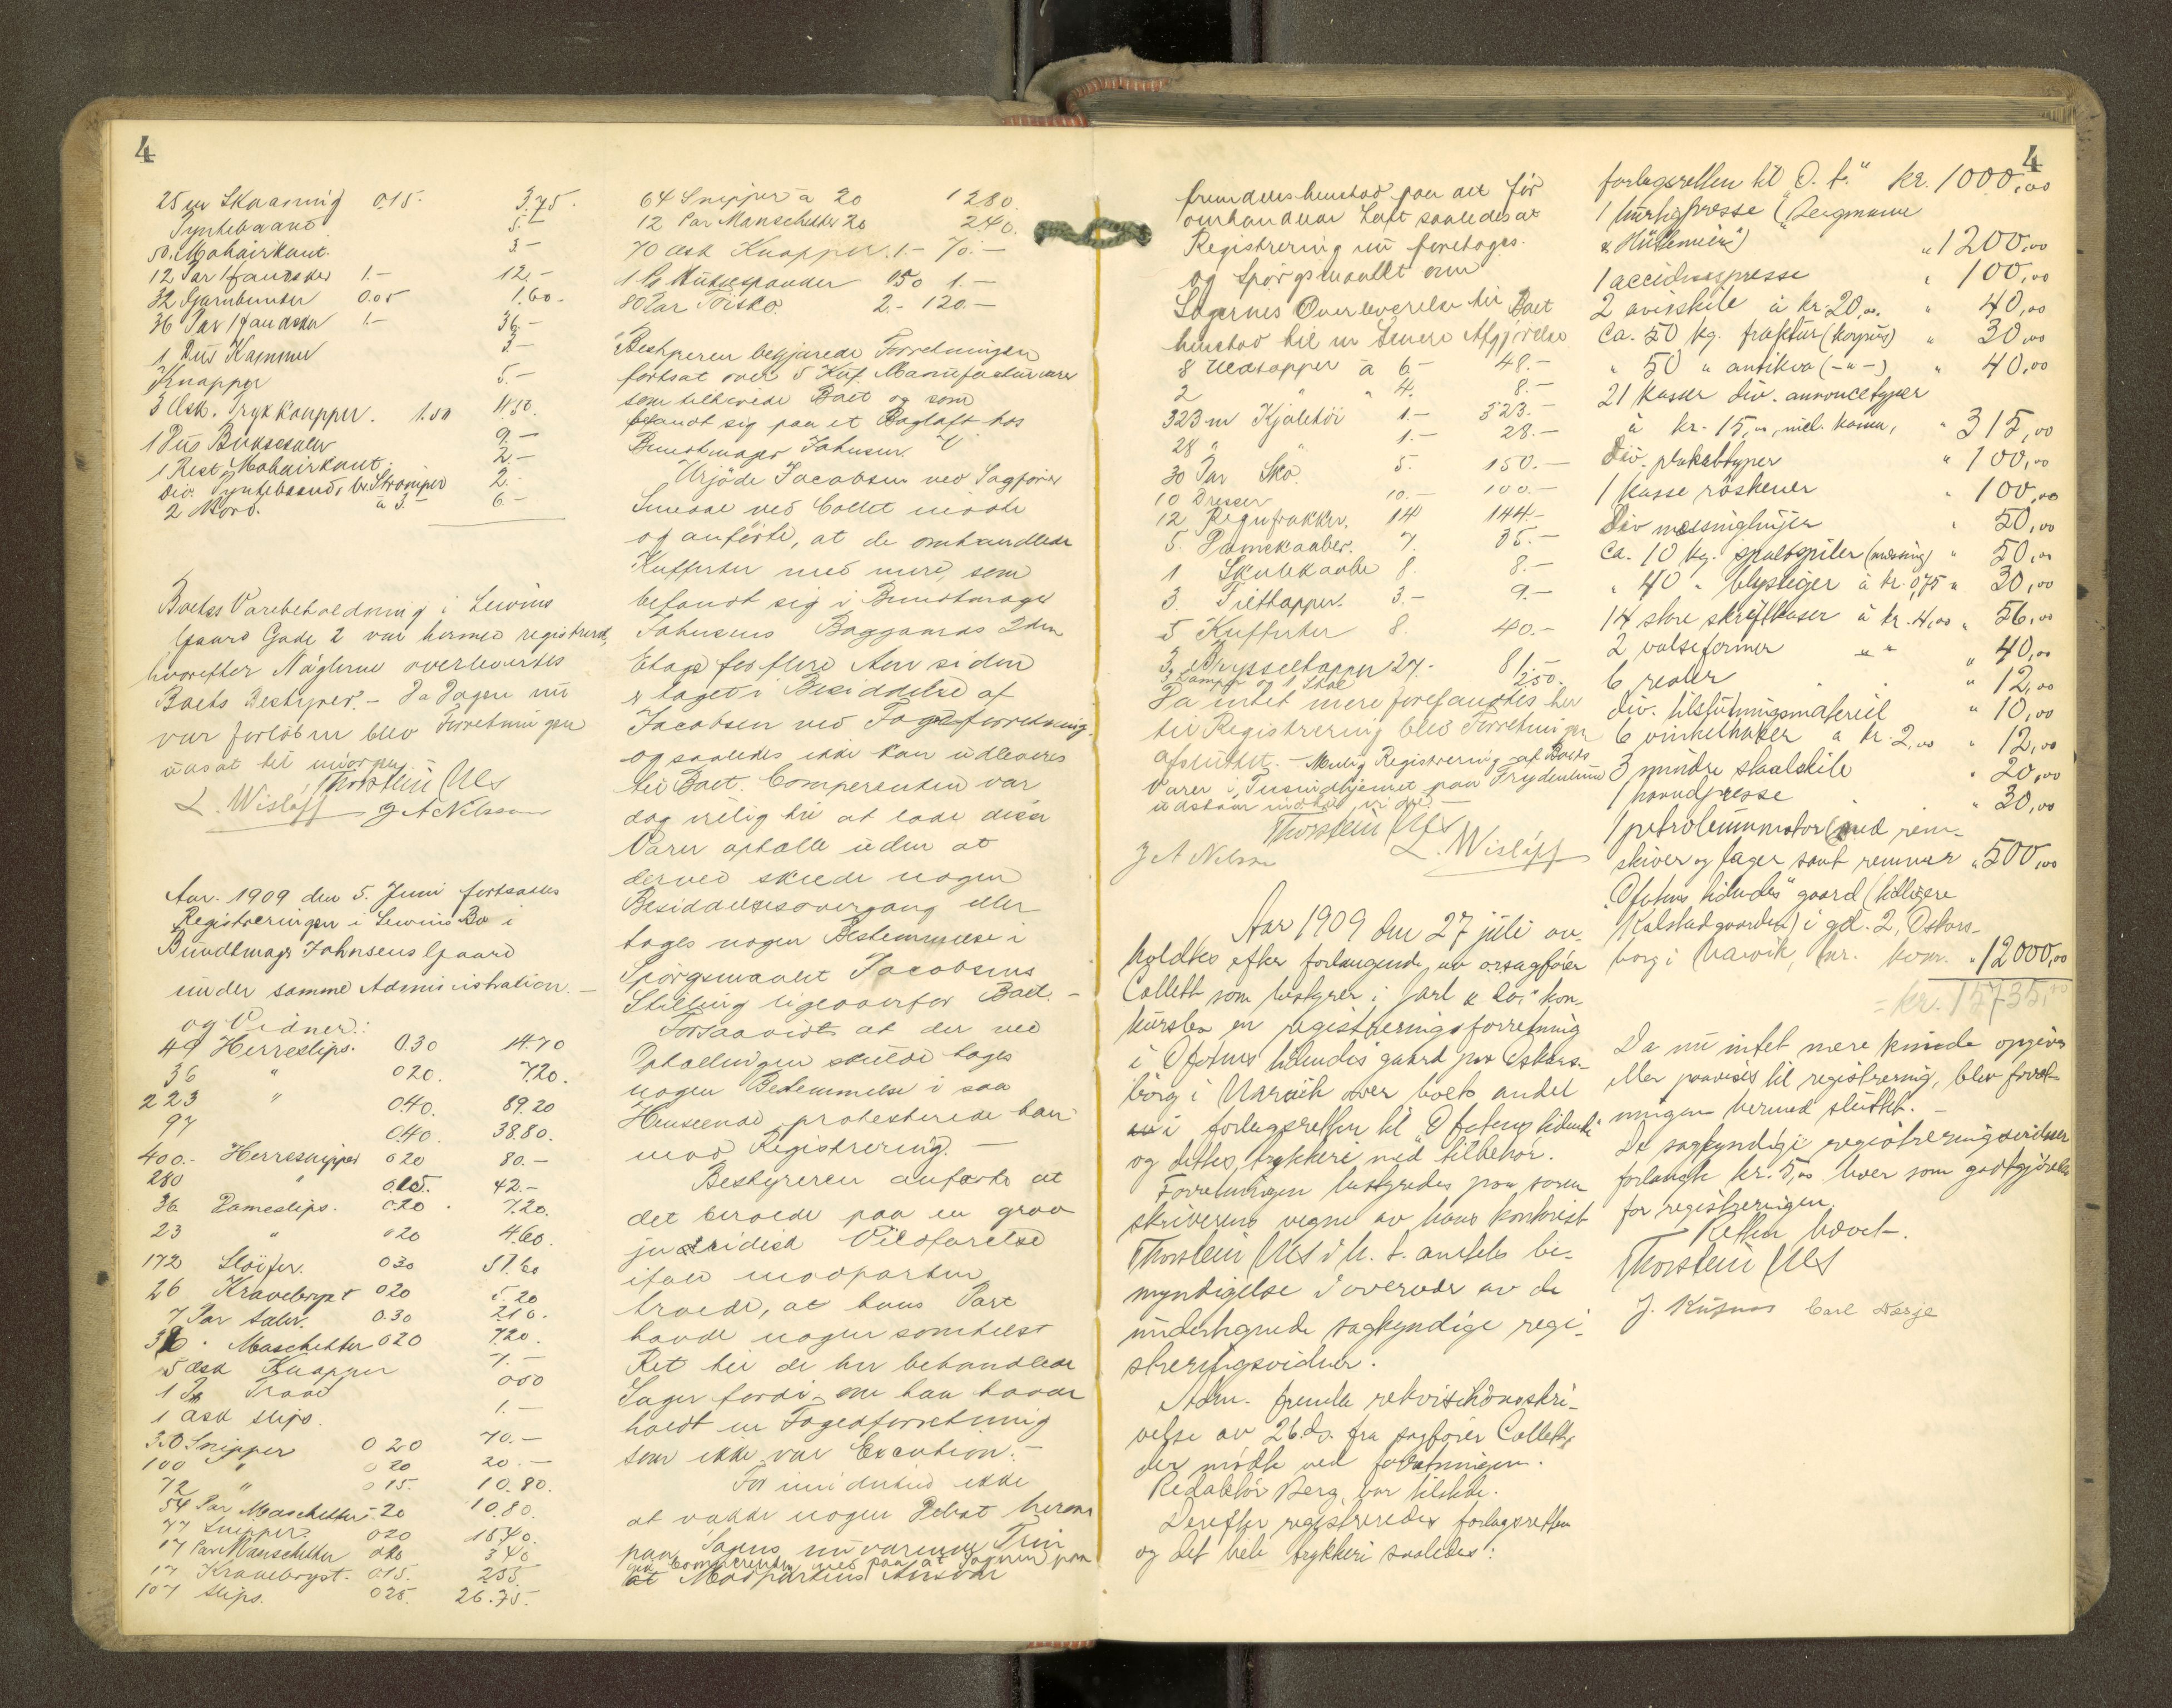 4
25 m Skaaning 0.15. 3.75.
Pyntebaand 5.-
50. Mohairkant. 3-
12 Par Handsker 1.- 12.-
32 Garnbunter 0.05 1.60-
36 Par Handsker 1.- 36.-
1 Dus Kammer 3.-
Knapper 5.-
3 Æsk. Trykknapper. 1.50
1 Dus Buksesæler 9.-
1 Rest Mohairkant. 2-
Div. Pyntebaand, br. Strømper 2.-
2 à 3.- 6-
Boets Varebeholdning i Lewins
Gaard Gade 2 var hermed registrered,
hvorefter Nøglerne overleveredes
Boets Bestyrer. - Da Dagen nu
var forløben blev Forretningen
udsat til imorgen. -
Thorstein Ues
L. Wisløff J A Nilssen
Aar. 1909 den 5. Juni fortsattes
Registreringen i Lewins Bo i
Bundtmager Johnsens Gaard
under samme Administration. -
og Vidner:
49 Herreslips. 0.30 14.70
36 " 020. 7.20.
223 " 0.40. 89.20
97 0.40. 38.80.
400.- Herresnipper 020 80.-
280 " 0.15. 42.-
36 Dameslips. 0.20. 7.20.
23 " 020 4.60.
172 Sløifer. 030 51.60
26 Kravebryst 020 5.20
7 Par Sæler. 0.30 2.10.
36 " Maschetter 020 720.
5 æsk Knapper 7.-
1 Traad 050
1 Æsk slips. 1.-
350 Snipper 0 20 70.-
100 " 0 20 20.-
72 " 015. 10.80.
54 Par Maschetter -.20 10.80.
77 Snipper. 020 15.40.
17 Par Manschetter 020 3 40
17 Kravebryst. 0.15. 255
107 slips. 025. 26.75.
64 Snipper à 20 1280.
12 Par Manschetter 20 240.
70 æsk Knapper. 1.- 70.-
1 050 1.-
80 Par Tøisko. 2.- 120.-
Bestyreren begjærede Forretningen
fortsat over 5 Kuf. Manufacturvarer
som tilhørede Boet og som
befandt sig paa et Bagloft hos
Bundtmager Johnsen.
Urjøde Jacobsen ved Sagfører
Smedal ved Collet mødte
og anførte, at de omhandlede
Kufferter med mere, som
befandt sig i Bundtmager
Johnsens Baggaards 2den
Etage for flere Aar siden
er taget i Besiddelse af
Jacobsen ved Fogedforretning.
og saaledes ikke kan udleveres
til Boet. Comparenten var
dog villig til at lade disse
Varer optælle uden at
derved skede nogen
Besiddelsesovergang eller
toges nogen Bestemmelse i
Spørgsmaalet Jacobsens
Stilling ligeoverfor Boet. -
Forsaavidt at der ved
Optællingen skulde tages
nogen Bestemmelse i saa
Henseende protesterede han
mod Registrering. -
Bestyreren anførte at
det beroede paa en grov
juridisk Vildfarelse
ifald modparten
troede, at hans Part
havde nogen somhelst
Ret til de her behandlede
Sager fordi, om han havde
holdt en Fogedforretning
som ikke var Execution. -
For imidlertid ikke
at vække nogen Debat herom
paa Sagens nuværende Trin
gik Comparenten med paa at Sagerne paa
at Modpartens Ansvar
4
fremdeles henstod paa det før
omhandlede Loft saaledes at
Registrering nu foretoges.
og Spørgsmaalet om
Sagernes Overleverelse til Boet
henstod til en senere Afgjørelse
8 Uldtæpper à 6- 48.-
2 " " 4. 8.-
323 m Kjoletøi 1.- 323.-
28 " " 1.- 28.-
30 Par Sko. 5. 150.-
10 Dresser 10.- 100.-
12 Regnfrakker. 14 144.-
5. Damekaaber. 7. 35.-
1 Skulekaabe 8. 8.-
3. Filttæpper. 3.- 9.-
5 Kufferter 8. 40.-
3 Brysseltæpper 27. 81.-
3 Lamper og 1 Stol 2.50.
Da intet mere forefandtes her
til Registrering blev Forretningen
afsluttet. - Mulig Registrering af Boets
Varer i Tusindhjemmet paa Frydenlund
udstaar indtil vi dre. -
Thorstein Ues
J A Nilssen L. Wisløff
Aar 1909 den 27 juli av-
holdtes efter forlangende av orsagfører
Collett som bestyrer i Jarl & Co.s" kon-
kursbo en registreringsforretning
i Ofotens tidendes gaard paa Oskars-
borg i Narvik over boets andel
i forlagsretten til "Ofotens tidende"
og dettes trykkeri med tilbehør.
Forretningen bestyredes paa soren
skriverens vegne av hans kontorist
Thorstein Ues i h. t. amtets be-
myndigelse i overvær av de
undertegnede sagkyndige regi-
streringsvidner.
Adm. fremla rekvisitionsskri-
velse av 26. ds. fra sagfører Collett,
der mødte ved forretningen.
Redaktør Berg var tilstede.
Derefter registreredes forlagsretten
og det hele trykkeri saaledes:
forlagsretten til "O. t." kr. 1000,00
1 hurtigpresse ("Bergmann
& Hüttemeier") " 1200,00
1 accidenspresse " 100,00
2 avisskibe à kr. 20,00. " 40,00
Ca. 50 kg. fraktur (korpus) " 30,00
" 50 " antikva (-"-) " 40,00
21 kasser div. annoncetyper
à kr. 15,00, incl. kasser, " 315,00
Div. plakattyper " 100,00
1 kasse røskener " 100,00
Div messinglinjer " 50,00
Ca. 10 kg. spaltspiler (messing) " 50,00
" 40 " blysteger à kr. 0,75 " 30,00
14 store skriftkasser à kr. 4,00 " 56,00
2 valseformer " " " 40,00
6 realer " 12,00
div. tilslutningsmateriel " 10,00
6 vinkelhaker à kr. 2,00 " 12,00
3 mindre staalskibe " 20,00
1 haandpresse " 30,00
1 petroleumsmotor (med rem-
skiver og lager samt remmer " 500,00
"Ofotens tidendes" gaard (tidligere
Kalstadgaarden) i gd. 2, Oskars-
borg i Narvik, kr. " 12000,00
= kr. 15735,00
Da nu intet mere kunde opgives
eller paavises til registrering, blev forret-
ningen hermed sluttet. -
De sagkyndige registreringsvidner
forlangte kr. 5,00 hver som godtgjørelse
for registreringen.
Retten hævet.
Thorstein Ues
J. Carl Nesje